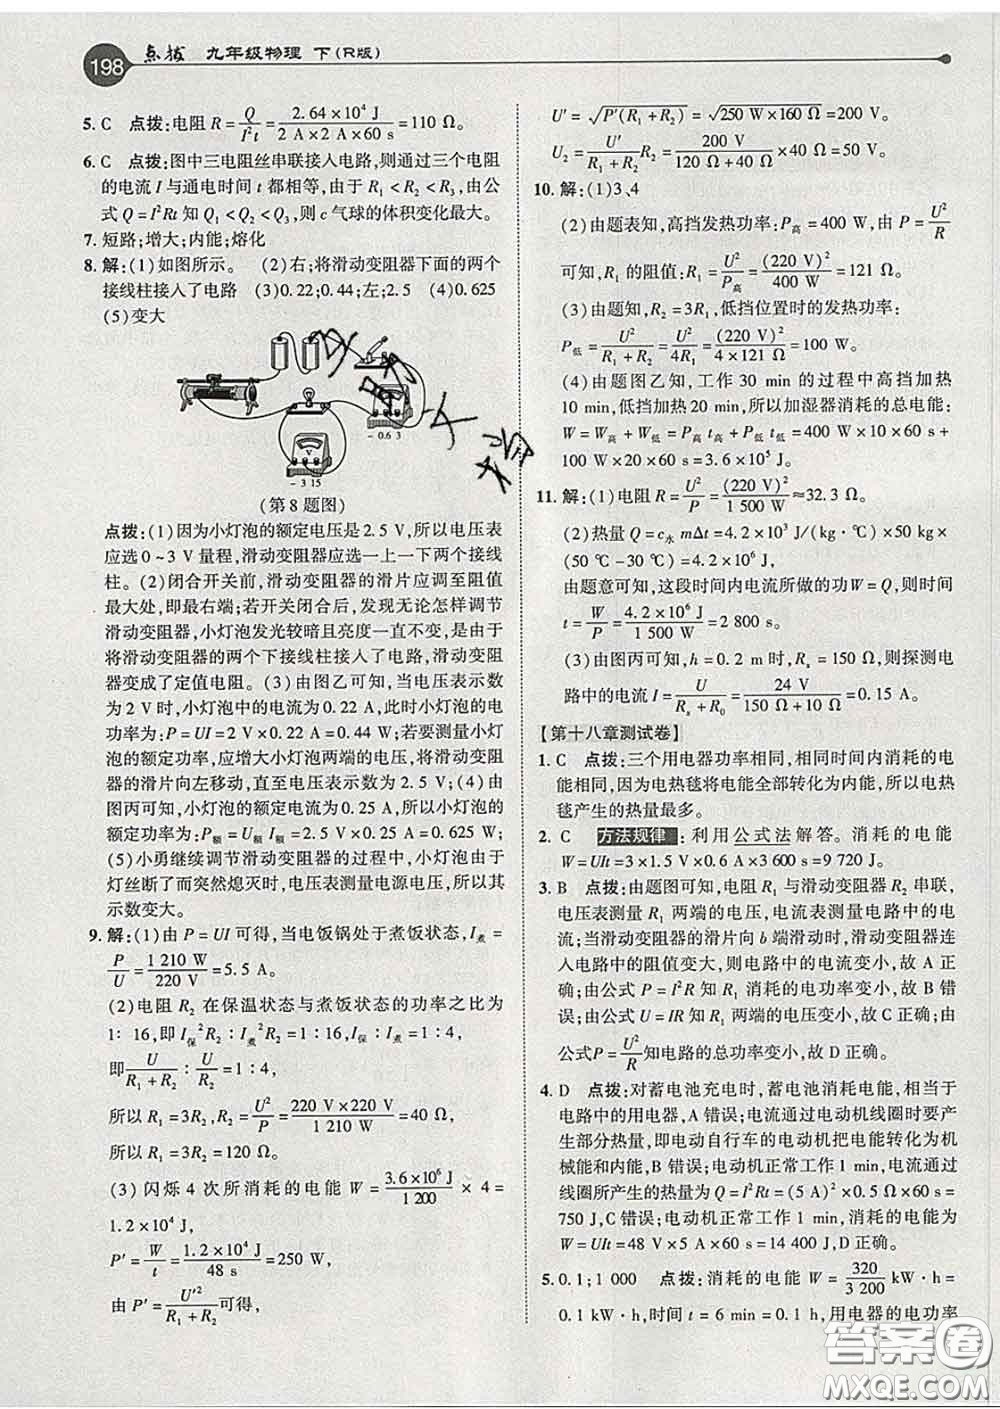 198 点拨 九年级物理 下(R版)
5. C 点拨:电阻 R = Q/(I²t) = (2.64×10⁴ J)/(2 A×2 A×60 s) = 110 Ω。
6. C 点拨:图中三电阻丝串联接入电路,则通过三个电阻
的电流 I 与通电时间 t 都相等,由于 R₁<R₂<R₃,由公
式 Q=I²Rt 知 Q₁<Q₂<Q₃,则 c 气球的体积变化最大。
7. 短路;增大;内能;熔化
8. 解:(1)如图所示。 (2)右;将滑动变阻器下面的两个
接线柱接入了电路 (3)0.22;0.44;左;2.5 (4)0.625
(5)变大
- 0.6 3
- 3 15
(第 8 题图)
点拨:(1)因为小灯泡的额定电压是 2.5 V,所以电压表
应选 0~3 V 量程,滑动变阻器应选一上一下两个接线
柱。(2)闭合开关前,滑动变阻器的滑片应调至阻值
最大处,即最右端;若开关闭合后,发现无论怎样调节
滑动变阻器,小灯泡发光较暗且亮度一直不变,是由于
将滑动变阻器的两个下接线柱接入了电路,滑动变阻
器变成了定值电阻。(3)由图乙可知,当电压表示数
为 2 V 时,小灯泡中的电流为 0.22 A,此时小灯泡的电
功率为:P=UI=2 V×0.22 A=0.44 W;小灯泡两端的
电压小于额定电压,要想测量小灯泡的额定功率,
应增大小灯泡两端的电压,所以需将滑动变阻
器的滑片向左移动,直至电压表示数为 2.5 V;(4)由
图丙可知,小灯泡的额定电流为 0.25 A,所以小灯泡的
额定功率为:P额=U额 I额=2.5 V×0.25 A=0.625 W;
(5)小勇继续调节滑动变阻器的过程中,小灯泡由于
灯丝断了而突然熄灭时,电压表测量电源电压,所以其
示数变大。
9. 解:(1)由 P=UI 可得,当电饭锅处于煮饭状态,I煮 =
P/U = 1 210 W/220 V = 5.5 A。
(2)电阻 R₂ 在保温状态与煮饭状态的功率之比为
1∶16,即 I保²R₂∶I煮²R₂=1∶16,I保∶I煮=1∶4,
即 U/(R₁+R₂)∶U/R₂=1∶4,
所以 R₁=3R₂,R₂=U²/P=(220 V×220 V)/1 210 W=40 Ω,
所以 R₁=3R₂=120 Ω。
(3)闪烁 4 次所消耗的电能 W = (3.6×10⁶ J)/1 200 × 4 =
1.2×10⁴ J,
P′=W/t=(1.2×10⁴ J)/48 s=250 W,
由 P′=U′²/(R₁+R₂)可得,
U′=√(P′(R₁+R₂))=√(250 W×160 Ω)=200 V,
U₂=U′/(R₁+R₂) R₂=200 V/(120 Ω+40 Ω)×40 Ω=50 V。
10. 解:(1)3、4
(2)由题表知,高挡发热功率:P高=400 W,由 P=U²/R
可知,R₁ 的阻值:R₁=U²/P高=(220 V)²/400 W=121 Ω。
(3)由题知,R₂=3R₁,低挡位置时的发热功率:
P低=U²/(R₁+R₂)=U²/4R₁=(220 V)²/(4×121 Ω)=100 W。
(4)由题图乙知,工作 30 min 的过程中高挡加热
10 min,低挡加热 20 min,所以加湿器消耗的总电能:
W=W高+W低=P高t高+P低t低=400 W×10×60 s+
100 W×20×60 s=3.6×10⁵ J。
11. 解:(1)电阻 R=U²/P=(220 V)²/1 500 W≈32.3 Ω。
(2)热量 Q=c水mΔt=4.2×10³ J/(kg·℃)×50 kg
×(50 ℃-30 ℃)=4.2×10⁶ J,
由题意可知,这段时间内电流所做的功 W=Q,则时间
t=W/P=(4.2×10⁶ J)/1 500 W=2 800 s。
(3)由图丙可知,h=0.2 m 时,Rₓ=150 Ω,则探测电
路中的电流 I=U/(Rₓ+R₀)=24 V/(150 Ω+10 Ω)=0.15 A。
【第十八章测试卷】
1. C 点拨:三个用电器功率相同,相同时间内消耗的电
能相同,因为电热毯将电能全部转化为内能,所以电热
毯产生的热量最多。
2. C 方法规律:利用公式法解答。消耗的电能
W=UIt=3×1.5 V×0.6 A×3 600 s=9 720 J。
3. B 点拨:由题图可知,电阻 R₁ 与滑动变阻器 R₂ 串联,
电压表测量 R₁ 两端的电压,电流表测量电路中的电
流;当滑动变阻器的滑片向 b 端滑动时,滑动变阻器连
入电路中的阻值变大,则电路中的电流变小,故 A 正
确;由公式 P=I²R 知 R₁ 消耗的电功率变小,故 B 错
误;由公式 U=IR 知 R₁ 两端的电压变小,故 C 正确;由
公式P=U²/R知电路的总功率变小,故 D 正确。
4. D 点拨:对蓄电池充电时,蓄电池消耗电能,相当于
电路中的用电器,A 错误;电流通过电动机线圈时要产
生部分热量,即电动自行车的电动机把电能转化为机
械能和内能,B 错误;电动机正常工作 1 min,电流通过
线圈所产生的热量为 Q=I²Rt=(5 A)²×0.5 Ω×60 s=
750 J,C 错误;电动机正常工作 1 min,消耗的电能为
W=UIt=48 V×5 A×60 s=14 400 J,D 正确。
5. 0.1;1 000 点拨:消耗的电能 W=320/3 200 kW·h=
0.1 kW·h,时间 t=6 min=0.1 h,用电器的电功率
答案圈
MXQE.COM